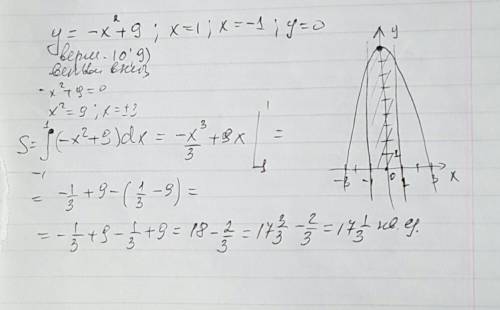 y = -x² + 9 ; x = 1 ; x = -1 ; y = 0
верш. (0; 9)
ветви вниз
-x² + 9 = 0
x² = 9 ; x = ±3
S = ∫₋₁¹ (-x² + 9) dx = -x³/3 + 9x |₋₁¹ =
= -1/3 + 9 - (1/3 - 9) =
= -1/3 + 9 - 1/3 + 9 = 18 - 2/3 = 17 3/3 - 2/3 = 17 1/3 кв. ед.
y
-3 -1 0 1 3 x
1